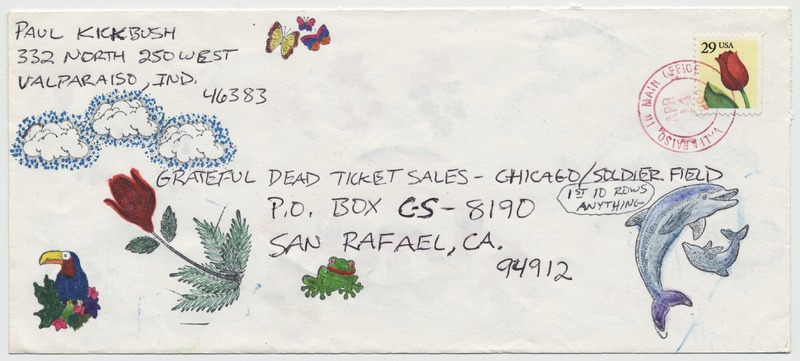 PAUL KICKBUSH
332 NORTH 250 WEST
VALPARAISO, IND.
46383
29 USA
VALPARAISO IN MAIN OFFICE
APR
GRATEFUL DEAD TICKET SALES - CHICAGO/SOLDIER FIELD
1ST 10 ROWS
ANYTHING
P.O. BOX GS-8190
SAN RAFAEL, CA.
94912